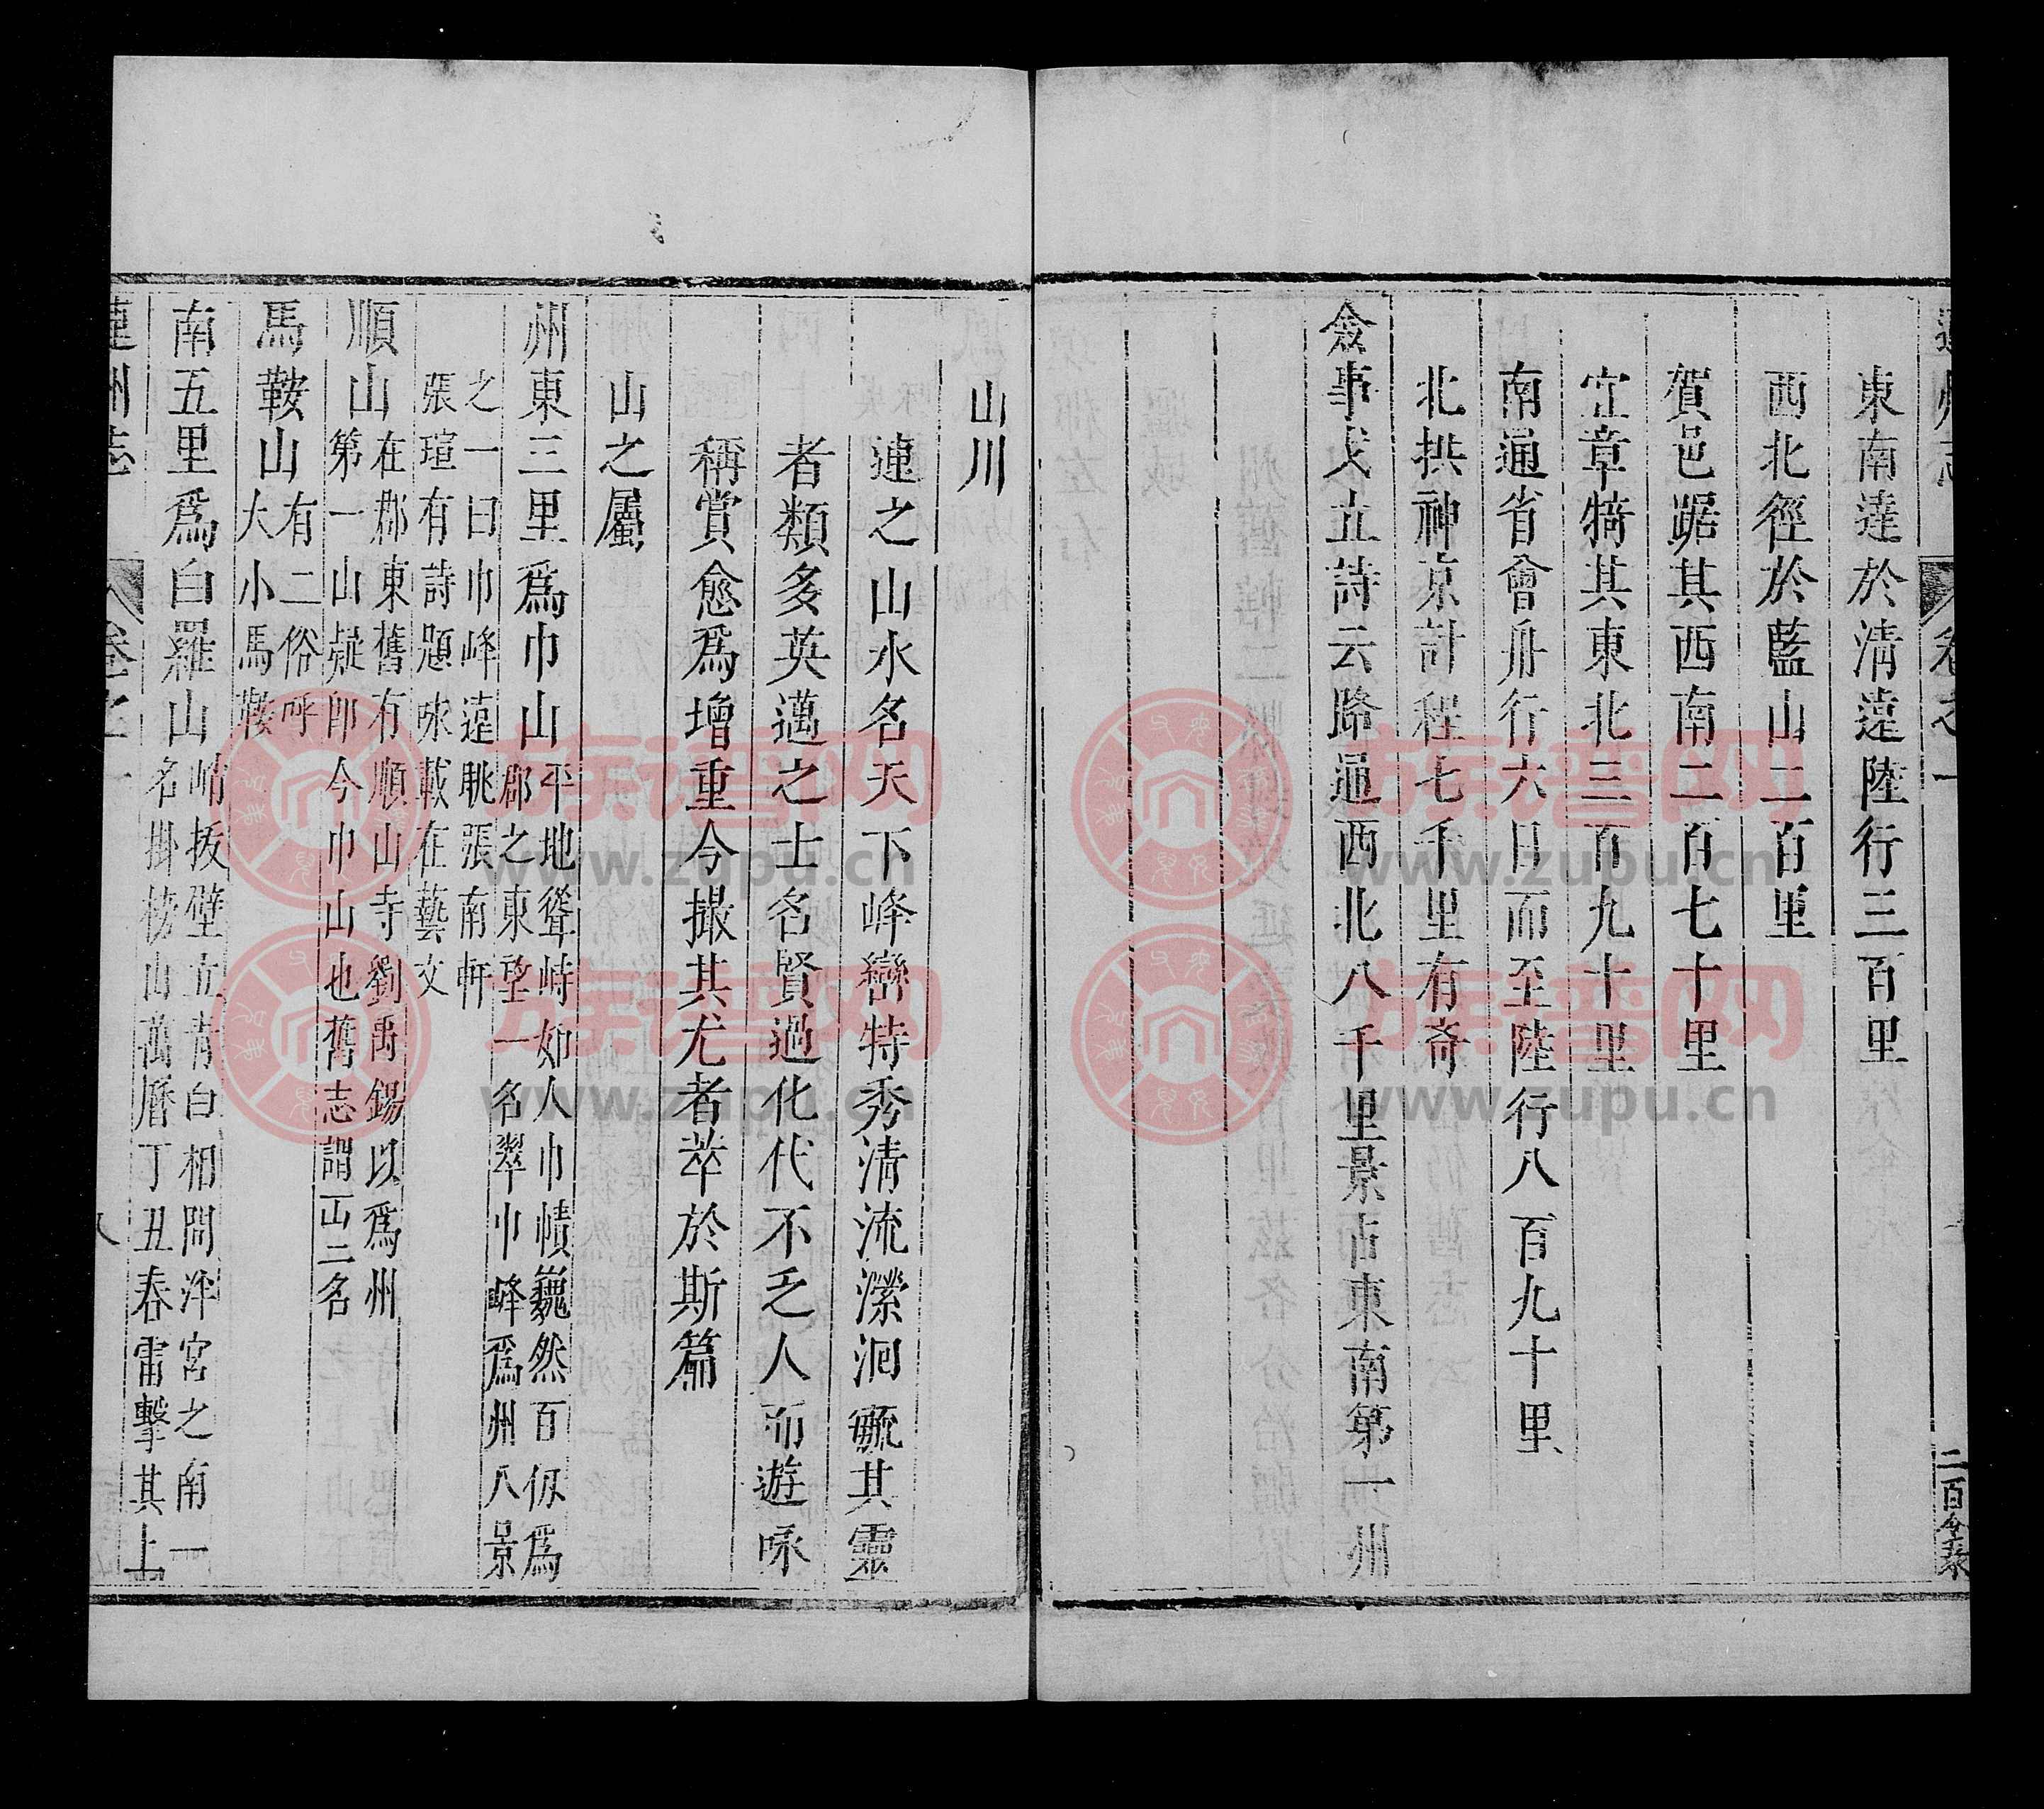 連州志 卷之一
東南達於清遠陸行三百里
西北徑於藍山二百里
賀邑踞其西南二百七十里
宜章犄其東北三百九十里
南通省會舟行六日而至陸行八百九十里
北拱神京計程七千里有奇
僉事戈立詩云路通西北八千里景占東南第一州
山川
連之山水名天下峰巒特秀清流瀠洄毓其靈
者類多英邁之士名賢過化代不乏人而遊咏
稱賞愈爲增重今撮其尤者萃於斯篇
山之屬
州東三里爲巾山平地聳峙如人巾幘巍然百仞爲
郡之東望一名翠巾峰爲州八景
之一曰巾峰遠眺張南軒
張瑄有詩題咏載在藝文
順山在郡東舊有順山寺劉禹錫以爲州
第一山疑即今巾山也舊志謂山二名
馬鞍山有二俗呼
大小馬鞍
南五里爲白羅山峭拔壁立青白相間泮宮之南一
名掛榜山萬曆丁丑春雷擊其上
連州志 卷之一 八
族谱网
www.zupu.cn
族谱网
www.zupu.cn
族谱网
www.zupu.cn
族谱网
www.zupu.cn